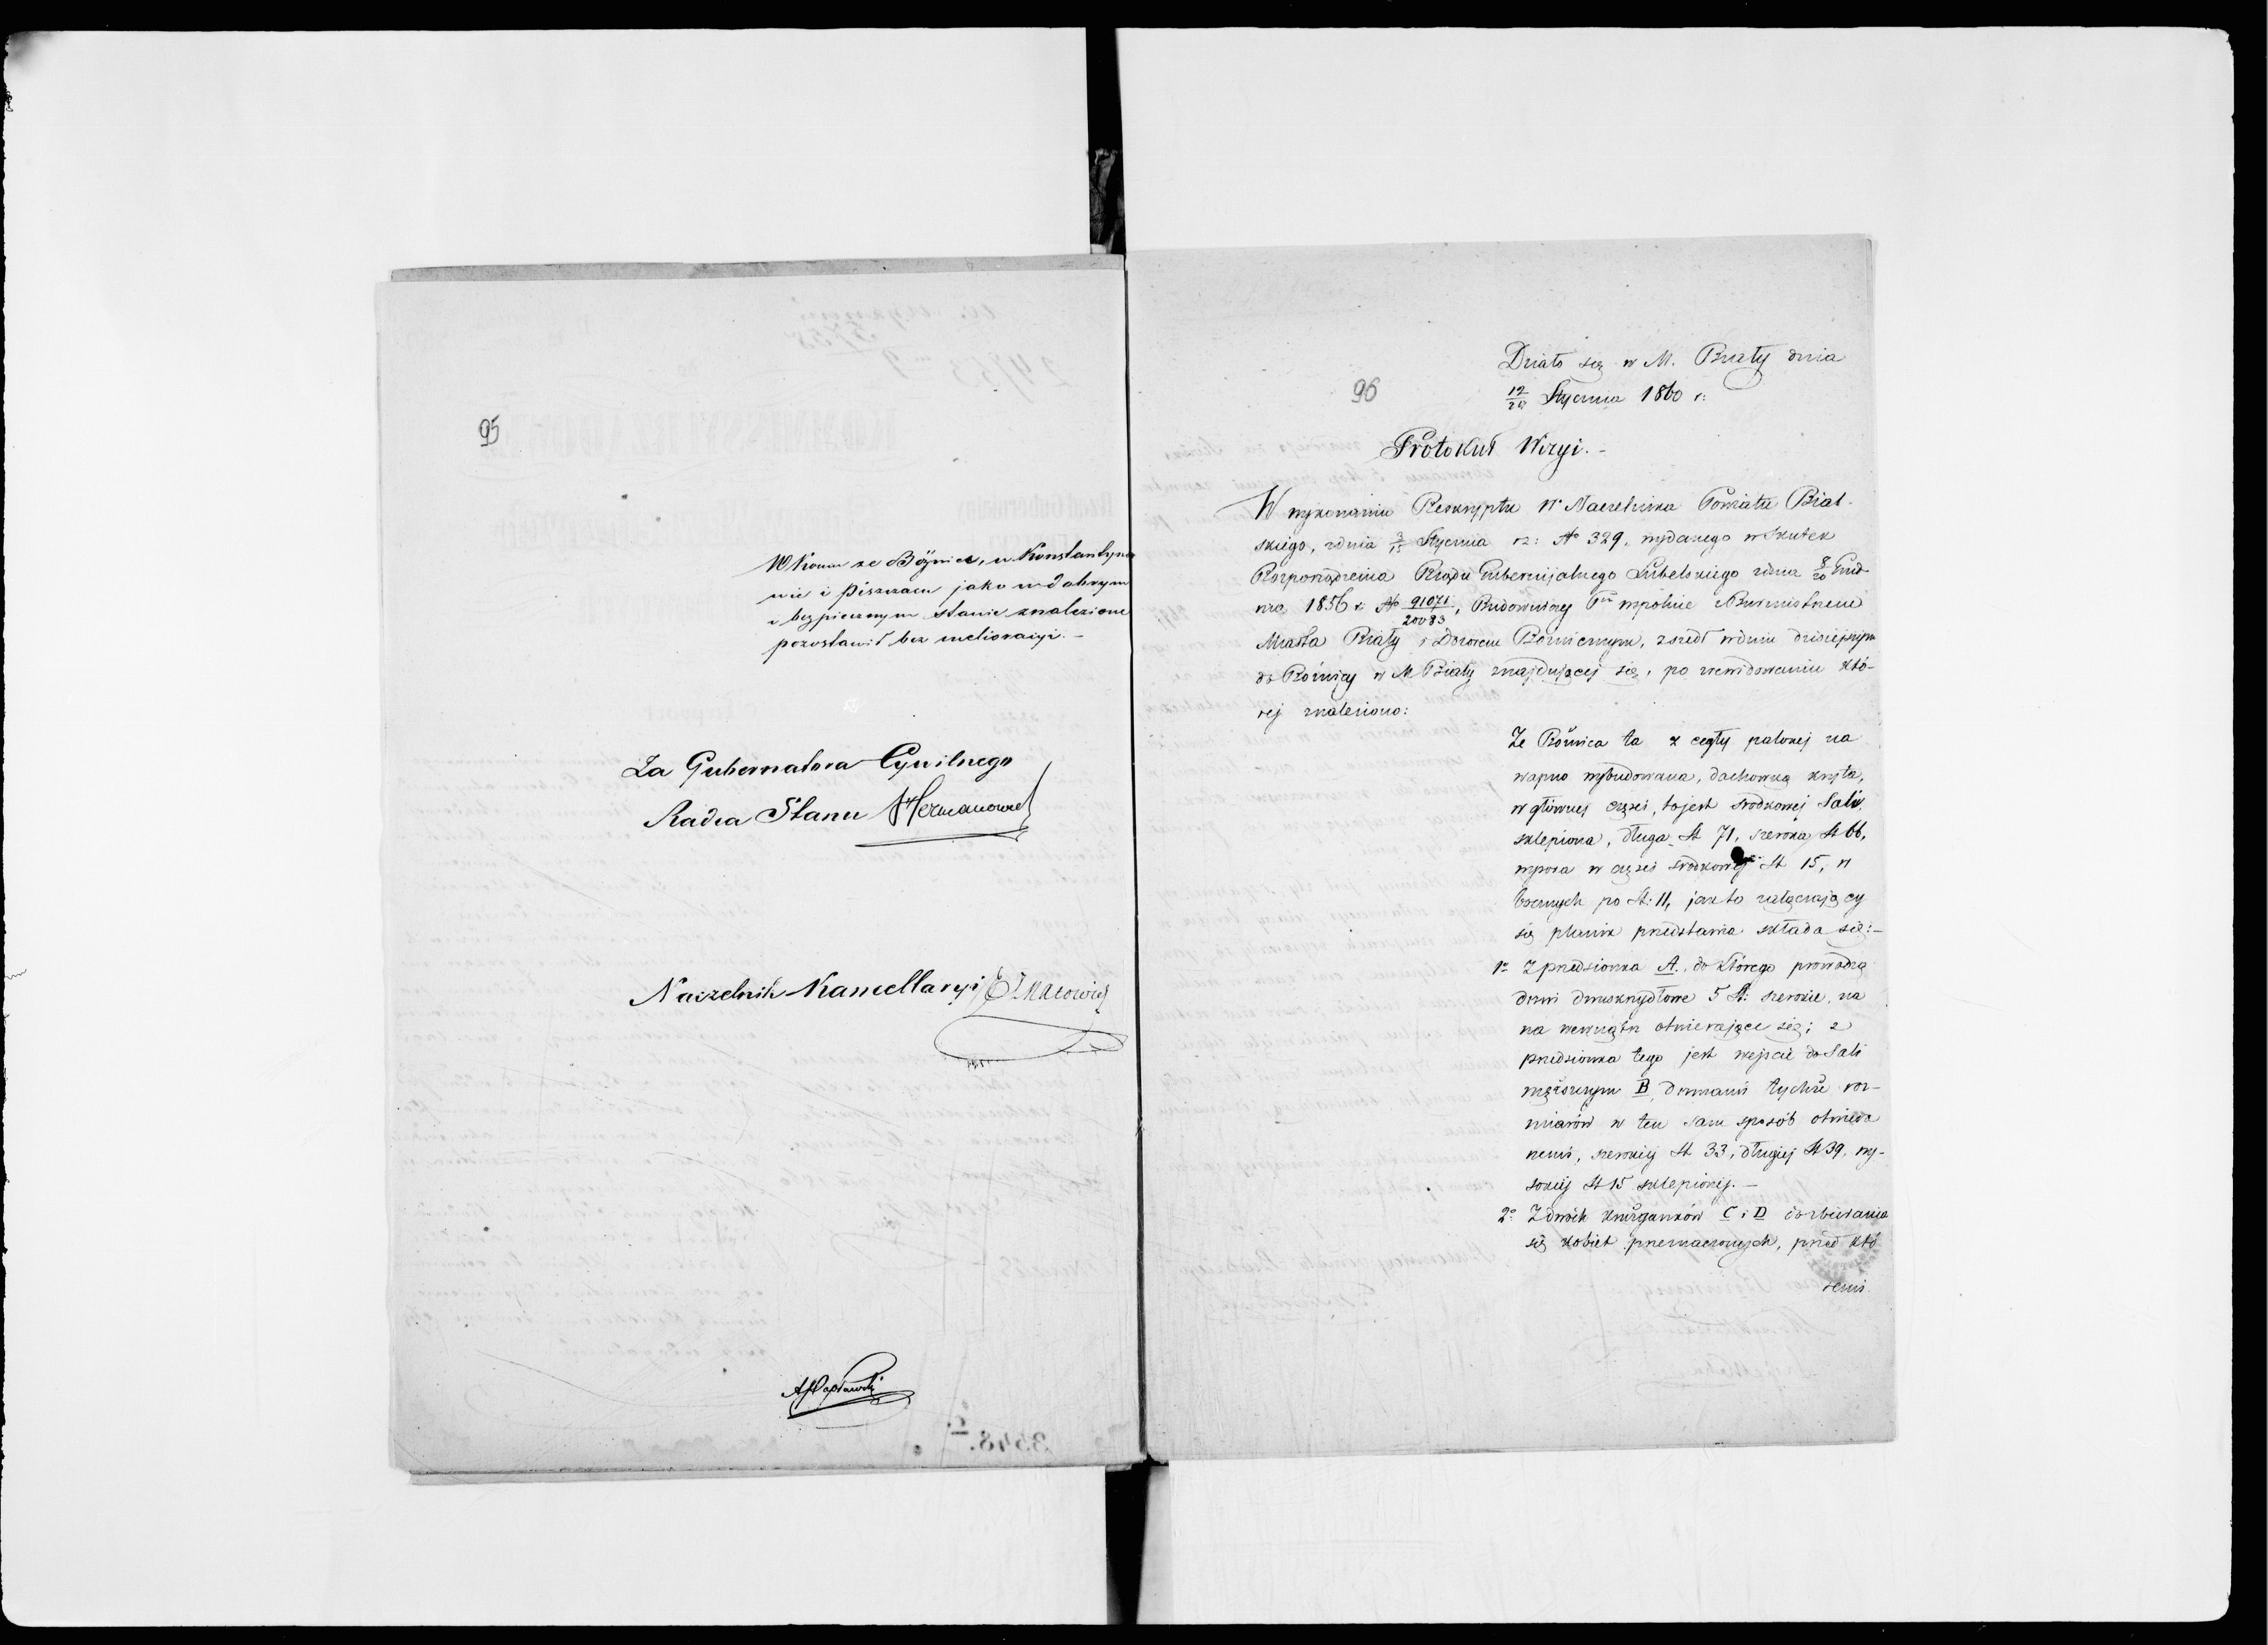 95
W końcu ze Bóżnice, w Konstantyno
wie i Piszczacu jako w dobrym
i bezpiecznym stanie znalezione
pozostawił bez melioracyi. –
Za Gubernatora Cywilnego
Radca Stanu
Naczelnik Kancellaryi
96
Działo się w M. Białły dnia
12/24 Stycznia 1860 r:
Protokuł Wizyi. –
W wykonaniu Reskryptu Wo Naczelnika Powiatu Bial-
skiego, zdnia 3/15 Stycznia rz: No 329, wydanego w skutek
Rozporządzenia Rządu Gubernijalnego Lubelskiego zdnia 8/20 Grud-
nia 1856 r No 91071/20083, Budowniczy Ptu wspólnie z Burmistrzem
Miasta Biały i Dozorem Bóżniczym, zszedł w dniu dzisiejszym
do Bóźnicy w M Biały znajdującej się, po zrewidowaniu któ-
rej znaleziono:
Że Bóźnica ta z cegły palonej na
wapno wybudowana, dachówką kryta,
w głównej części, tojest środkowej Sali
sklepiona, długa St 71, szeroka St 66,
wysoka w części środkowej St 15, w
bocznych po St: 11, jak to załączający
się planik przedstawia składa się: –
1o Z przedsionka A. do którego prowadzą
drzwi dwuskrzydłowe 5 St: szerokie, na
na wewnątrz otwierające się; z
przedsionka tego jest wejście do Sali
męższczyzn B, drzwiami tychże roz-
miarów w ten sam sposób otwiera
nemi, szerokiej St 33, długiej St 39, wy-
sokiej St 15 sklepionej. –
2o Z dwóch kurganków C i D do zbierania
się kobiet przeznaczonych, przed któ
remi
3548.